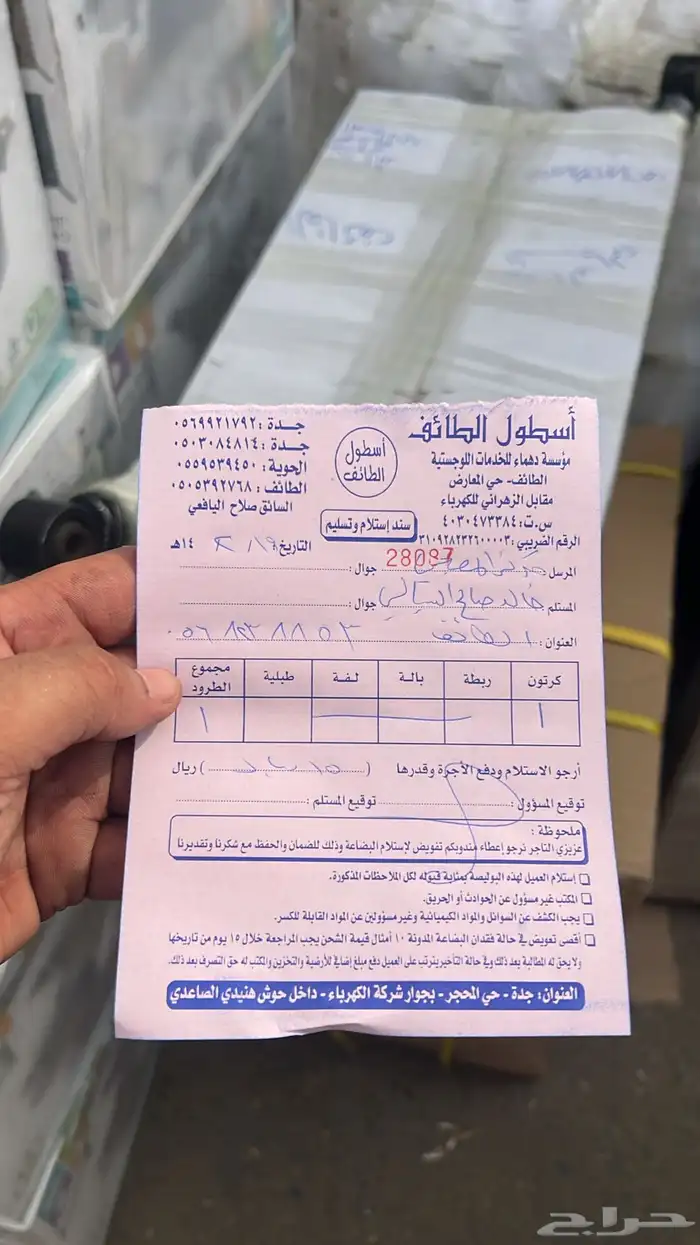 أسطول الطائف
مؤسسة دهماء للخدمات اللوجستية
الطائف - حي المعارض
مقابل الزهراني للكهرباء
س.ت: ٤٠٣٠٤٧٣٣٨٤
الرقم الضريبي: ٣١٠٩٢٨٢٣٢٦٠٠٠٠٣
أسطول الطائف
جدة: ٠٥٦٩٩٢١٧٩٢
جدة: ٠٥٠٣٠٨٤٨١٤
الحوية: ٠٥٥٩٥٣٩٤٥٠
الطائف: ٠٥٠٥٣٩٢٧٦٨
السائق صلاح اليافعي
سند إستلام وتسليم
التاريخ ١٤هـ
28087
المرسل: جوال:
المستلم: خالد صالح جوال:
العنوان: الطائف ٠٥٦٨٩٣٨٨٥٣
كرتون ربطة بالة لفة طبلية مجموع الطرود
١ ١
أرجو الاستلام ودفع الأجرة وقدرها ( ) ريال
توقيع المسؤول: توقيع المستلم:
ملحوظة:
عزيزي التاجر نرجو إعطاء مندوبكم تفويض لإستلام البضاعة وذلك للضمان والحفظ مع شكرنا وتقديرنا
إستلام العميل لهذه البوليصة بمثابة قبوله لكل الملاحظات المذكورة.
المكتب غير مسؤول عن الحوادث أو الحريق.
يجب الكشف عن السوائل والمواد الكيميائية وغير مسؤولين عن المواد القابلة للكسر.
أقصى تعويض في حالة فقدان البضاعة المدونة ١٠ أمثال قيمة الشحن يجب المراجعة خلال ١٥ يوم من تاريخها
ولا يحق له المطالبة بعد ذلك وفي حالة التأخير يترتب على العميل دفع مبلغ إضافي للأرضية والتخزين والمكتب له حق التصرف بعد ذلك.
العنوان: جدة - حي المحجر - بجوار شركة الكهرباء - داخل حوش هنيدي الصاعدي
حراج